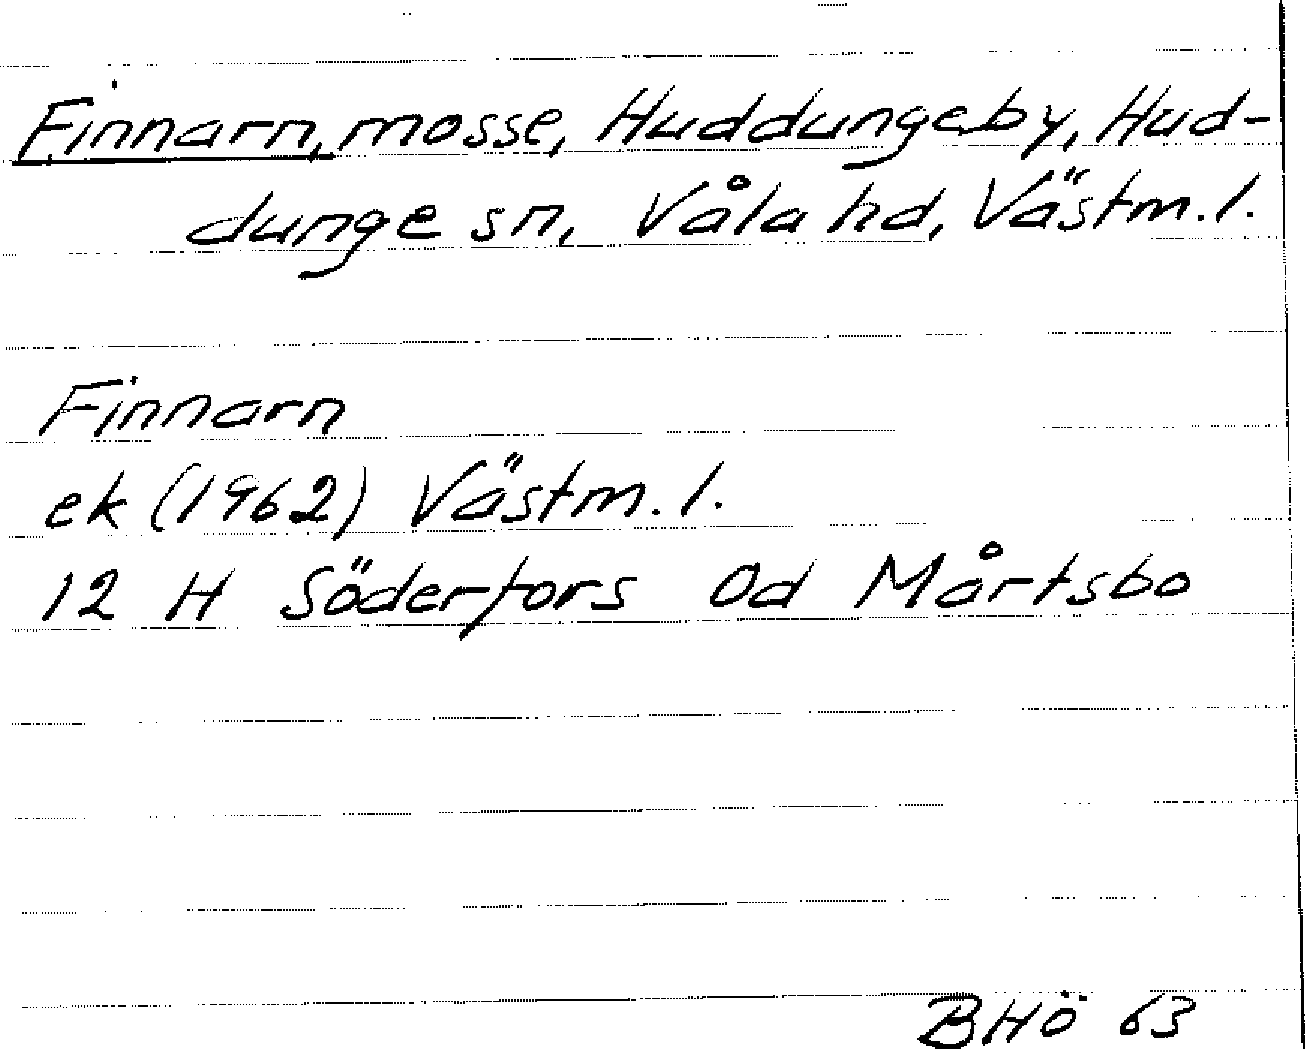 Finnarn, mosse, Huddungeby, Hud-
dunge sn, Våla hd, Västm. l.
Finnarn
ek (1962) Västm. l.
12 H Söderfors 0d Mårtsbo
BHÖ 63